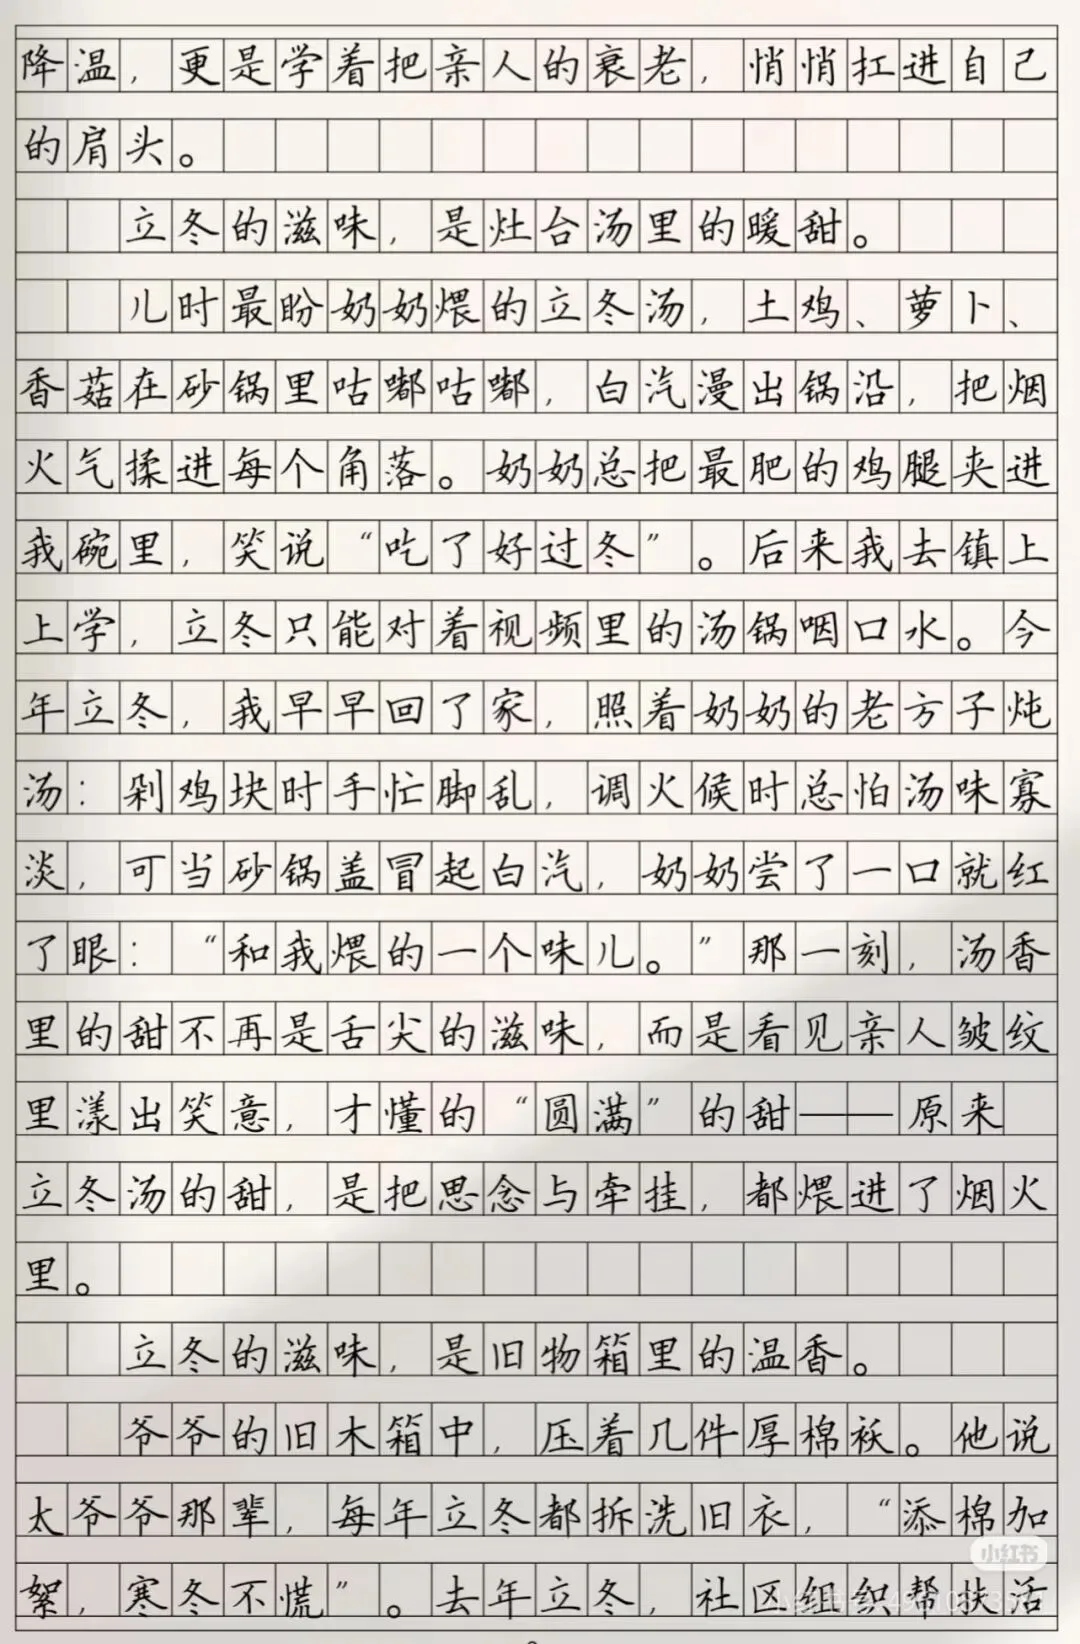 降温，更是学着把亲人的衰老，悄悄扛进自己
的肩头。
立冬的滋味，是灶台汤里的暖甜。
儿时最盼奶奶煨的立冬汤，土鸡、萝卜、
香菇在砂锅里咕嘟咕嘟，白汽漫出锅沿，把烟
火气揉进每个角落。奶奶总把最肥的鸡腿夹进
我碗里，笑说“吃了好过冬”。后来我去镇上
上学，立冬只能对着视频里的汤锅咽口水。今
年立冬，我早早回了家，照着奶奶的老方子炖
汤：剁鸡块时手忙脚乱，调火候时总怕汤味寡
淡，可当砂锅盖冒起白汽，奶奶尝了一口就红
了眼：“和我煨的一个味儿。”那一刻，汤香
里的甜不再是舌尖的滋味，而是看见亲人皱纹
里漾出笑意，才懂的“圆满”的甜——原来
立冬汤的甜，是把思念与牵挂，都煨进了烟火
里。
立冬的滋味，是旧物箱里的温香。
爷爷的旧木箱中，压着几件厚棉袄。他说
太爷爷那辈，每年立冬都拆洗旧衣，“添棉加
絮，寒冬不慌”。去年立冬，社区组织帮扶活
小红书